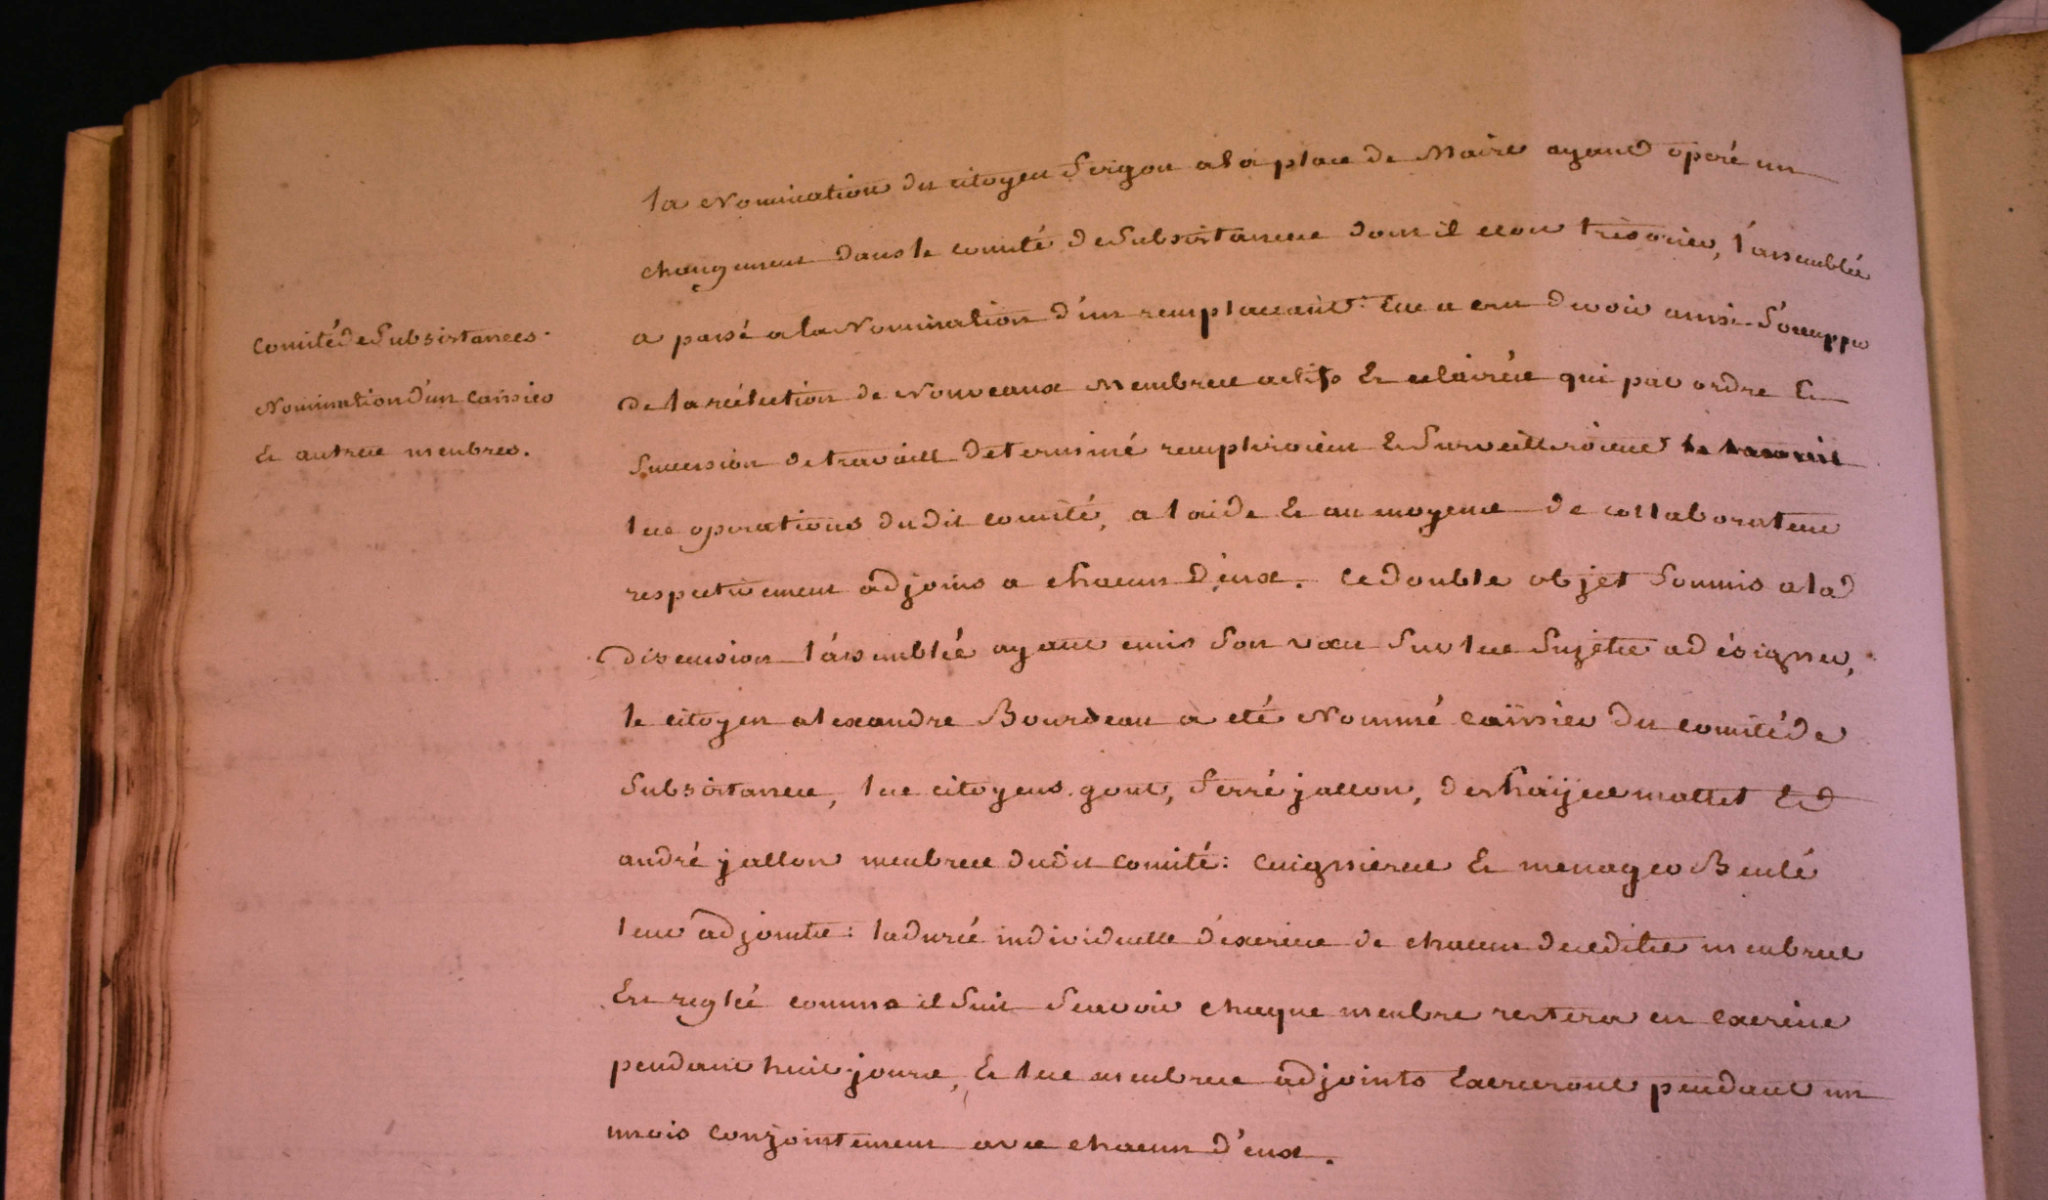 Comité de Subsistances.
Nomination d'un Caissier
& autres membres.
la Nomination du citoyen Sergon a la place de Maire ayant operé un
changement dans le comité de Subsistances dont il etoit trésorier, l'assemblée
a passé a la Nomination d'un remplacant. Elle a cru devoir aussi S'occupper
de la réélection de Nouveaux Membres actifs & eclairés qui par ordre &
Succession de travaill determiné rempliroient & Surveilleroient
les operations dudit comité, a l'aide & au moyens de collaborateurs
respectivement adjoins a chacun d'eux. Ce double objet Soumis a la
discussion l'assemblée ayant emis Son vœu Sur les Sujets a désigner,
le citoyen alexandre Bourdeau a eté Nommé caissier du comité de
Subsistances, les citoyens gout, Serré jallon, deshaijes mallet Et
andré jallon membres dudit comité: Cuignieres & menager Beulé
leurs adjoints: la durée individuelle d'exercice de chacun desdits membres
Est reglée comme il Suit Scavoir chaque membre restera en Exercice
pendant huit jours, & les membres adjoints Exerceront pendant un
mois conjointement avec chacun d'eux.